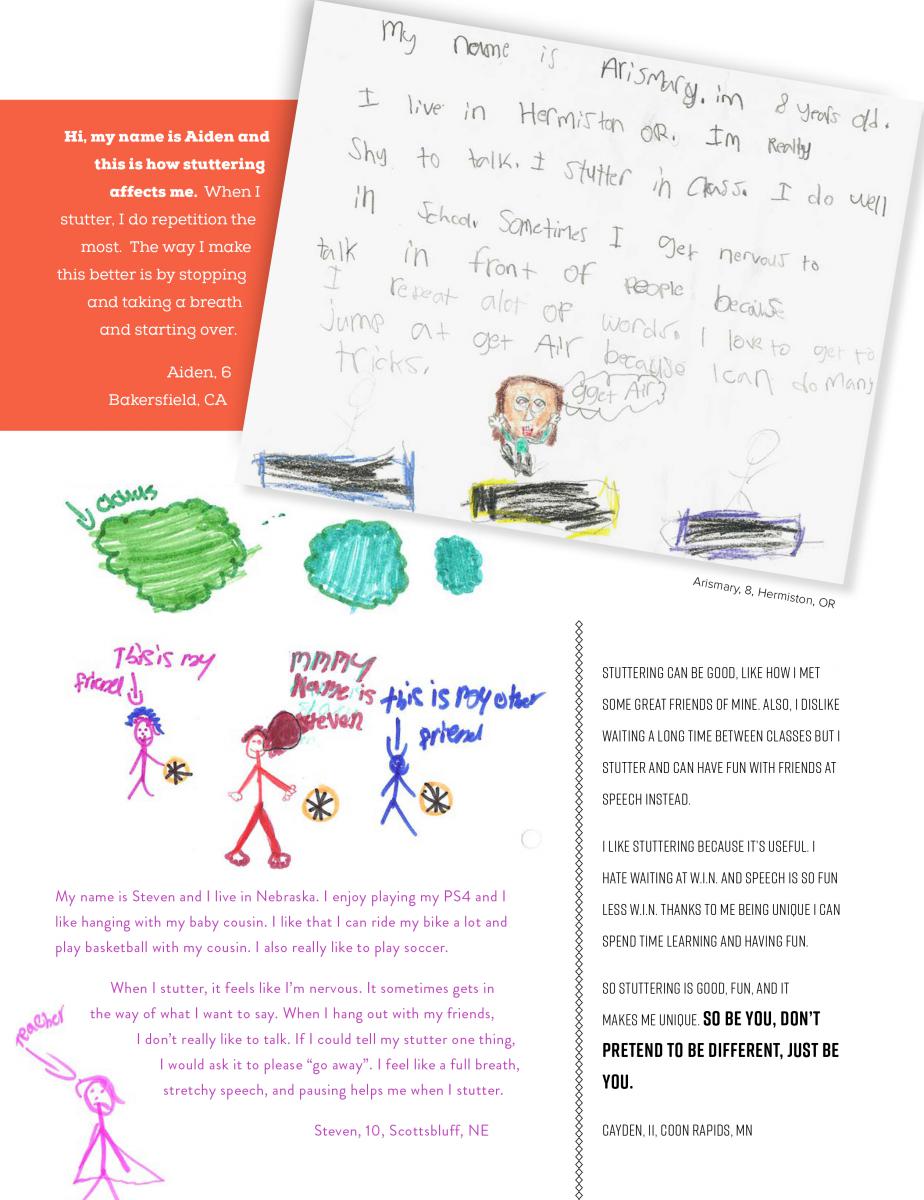 Hi, my name is Aiden and
this is how stuttering
affects me. When I
stutter, I do repetition the
most. The way I make
this better is by stopping
and taking a breath
and starting over.
Aiden, 6
Bakersfield, CA
My name is Arismary. im 8 years old.
I live in Hermiston OR. Im Really
Shy to talk. I stutter in Class. I do well
in School. Sometimes I get nervous to
talk in front of people because
I repeat alot of words. I love to get to
jump at get Air because I can do Many
tricks.
gget Air?
Arismary, 8, Hermiston, OR
This is my
friend
MMMy
Name is
steven
this is my other
friend
My name is Steven and I live in Nebraska. I enjoy playing my PS4 and I
like hanging with my baby cousin. I like that I can ride my bike a lot and
play basketball with my cousin. I also really like to play soccer.
When I stutter, it feels like I'm nervous. It sometimes gets in
the way of what I want to say. When I hang out with my friends,
I don't really like to talk. If I could tell my stutter one thing,
I would ask it to please "go away". I feel like a full breath,
stretchy speech, and pausing helps me when I stutter.
Steven, 10, Scottsbluff, NE
teacher
STUTTERING CAN BE GOOD, LIKE HOW I MET
SOME GREAT FRIENDS OF MINE. ALSO, I DISLIKE
WAITING A LONG TIME BETWEEN CLASSES BUT I
STUTTER AND CAN HAVE FUN WITH FRIENDS AT
SPEECH INSTEAD.
I LIKE STUTTERING BECAUSE IT'S USEFUL. I
HATE WAITING AT W.I.N. AND SPEECH IS SO FUN
LESS W.I.N. THANKS TO ME BEING UNIQUE I CAN
SPEND TIME LEARNING AND HAVING FUN.
SO STUTTERING IS GOOD, FUN, AND IT
MAKES ME UNIQUE. SO BE YOU, DON'T
PRETEND TO BE DIFFERENT, JUST BE
YOU.
CAYDEN, 11, COON RAPIDS, MN